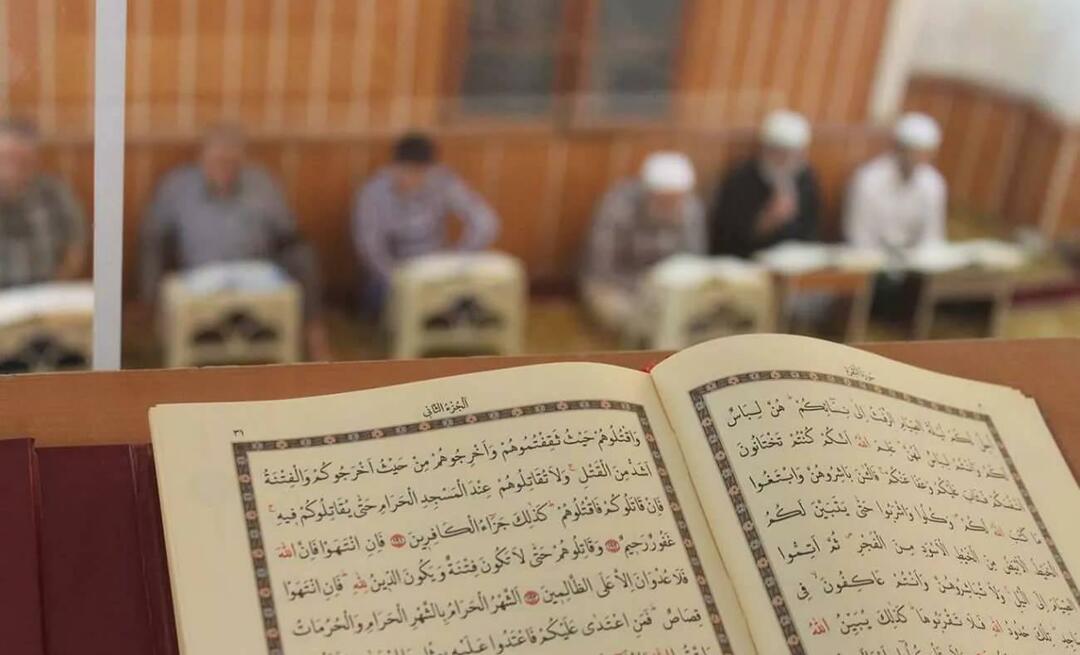 سُورَةُ الْبَقَرَةِ
اُحِلَّ لَكُمْ لَيْلَةَ الصِّيَامِ الرَّفَثُ اِلٰى نِسَآئِكُمْ هُنَّ لِبَاسٌ
لَكُمْ وَاَنْتُمْ لِبَاسٌ لَهُنَّ عَلِمَ اللّٰهُ اَنَّكُمْ كُنْتُمْ تَخْتَانُونَ
اَنْفُسَكُمْ فَتَابَ عَلَيْكُمْ وَعَفَا عَنْكُمْ فَالْـٰٔنَ بَاشِرُوهُنَّ وَابْتَغُوا
مَا كَتَبَ اللّٰهُ لَكُمْ وَكُلُوا وَاشْرَبُوا حَتّٰى يَتَبَيَّنَ لَكُمُ
الْخَيْطُ الْاَبْيَضُ مِنَ الْخَيْطِ الْاَسْوَدِ مِنَ الْفَجْرِ ثُمَّ اَتِمُّوا
الصِّيَامَ اِلَى الَّيْلِ وَلَا تُبَاشِرُوهُنَّ وَاَنْتُمْ عَاكِفُونَ فِي
تِلْكَ حُدُودُ اللّٰهِ فَلَا تَقْرَبُوهَا كَذٰلِكَ يُبَيِّنُ اللّٰهُ
اَلْجُزْءُ الثَّانِي
وَاقْتُلُوهُمْ حَيْثُ ثَقِفْتُمُوهُمْ وَاَخْرِجُوهُمْ مِنْ حَيْثُ اَخْرَجُوكُمْ وَالْفِتْنَةُ
اَشَدُّ مِنَ الْقَتْلِ وَلَا تُقَاتِلُوهُمْ عِنْدَ الْمَسْجِدِ الْحَرَامِ حَتّٰى يُقَاتِلُوكُمْ فِيهِ
فَاِنْ قَاتَلُوكُمْ فَاقْتُلُوهُمْ كَذٰلِكَ جَزَآءُ الْكَافِرِينَ ﴿١٩١﴾ فَاِنِ انْتَهَوْا فَاِنَّ اللّٰهَ
غَفُورٌ رَحِيمٌ ﴿١٩٢﴾ وَقَاتِلُوهُمْ حَتّٰى لَا تَكُونَ فِتْنَةٌ وَيَكُونَ الدِّينُ لِلّٰهِ فَاِنِ انْتَهَوْا
فَلَا عُدْوَانَ اِلَّا عَلَى الظَّالِمِينَ ﴿١٩٣﴾ اَلشَّهْرُ الْحَرَامُ بِالشَّهْرِ الْحَرَامِ وَالْحُرُمَاتُ
قِصَاصٌ فَمَنِ اعْتَدٰى عَلَيْكُمْ فَاعْتَدُوا عَلَيْهِ بِمِثْلِ مَا